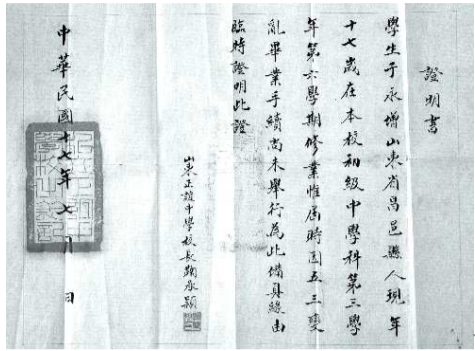 證明書
學生于永增山東省昌邑縣人現年
十七歲在本校初級中學科第三學
年第六學期修業惟屆時因五三變
亂畢業手續尚未舉行為此備具緣由
臨時證明此證
山東正誼中學校長鞠承頴
中華民國十七年七月 日